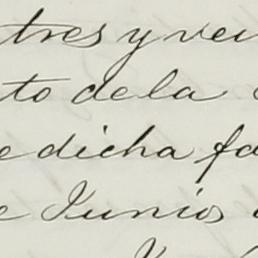 tres y vei
to de la
e dicha fa
e Junio